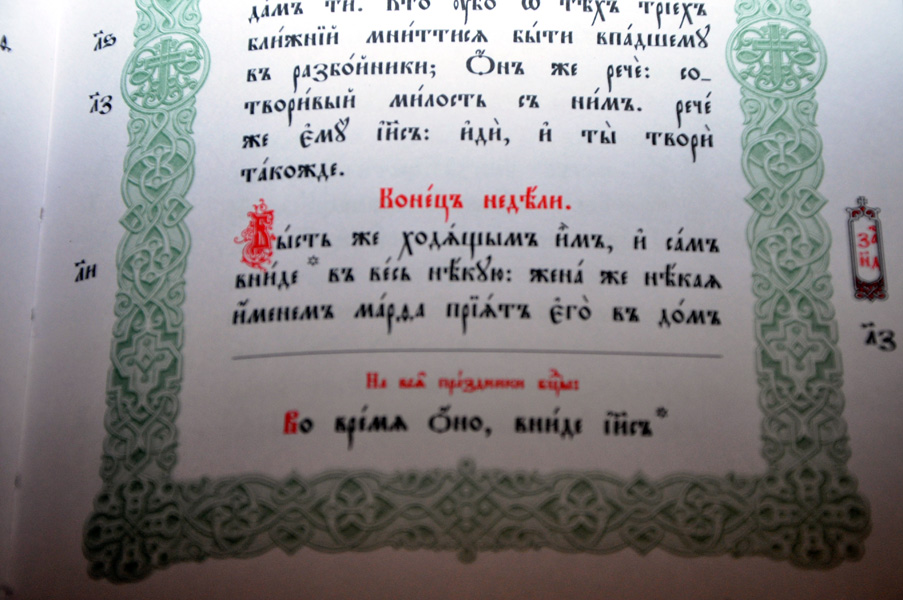 да́мъ ти. Кто ᲂу҆̀бо ѿ тѣ́хъ трїе́хъ
л҃ѕ
бли́жнїй мни́ттисѧ бы́ти впа́дшемꙋ
въ разбо́йники; Ѻ҆́нъ же речѐ: со_
л҃з
твори́вый ми́лость съ ни́мъ. рече́
же є҆мꙋ̀ і҆и҃съ: и҆дѝ, и҆ ты̀ творѝ
та́кожде.
Коне́цъ недѣ́ли.
Бы́сть же ходѧ́щымъ и҆̀мъ, и҆ са́мъ
л҃и
вни́де * въ ве́сь нѣ́кꙋю: жена́ же нѣ́каѧ
и҆́менемъ ма́рѳа прїѧ́тъ є҆го̀ въ до́мъ
л҃з
На всѧ̑ пра́здники бц҃ы:
Во вре́мѧ ѻ҆́но, вни́де і҆и҃съ*